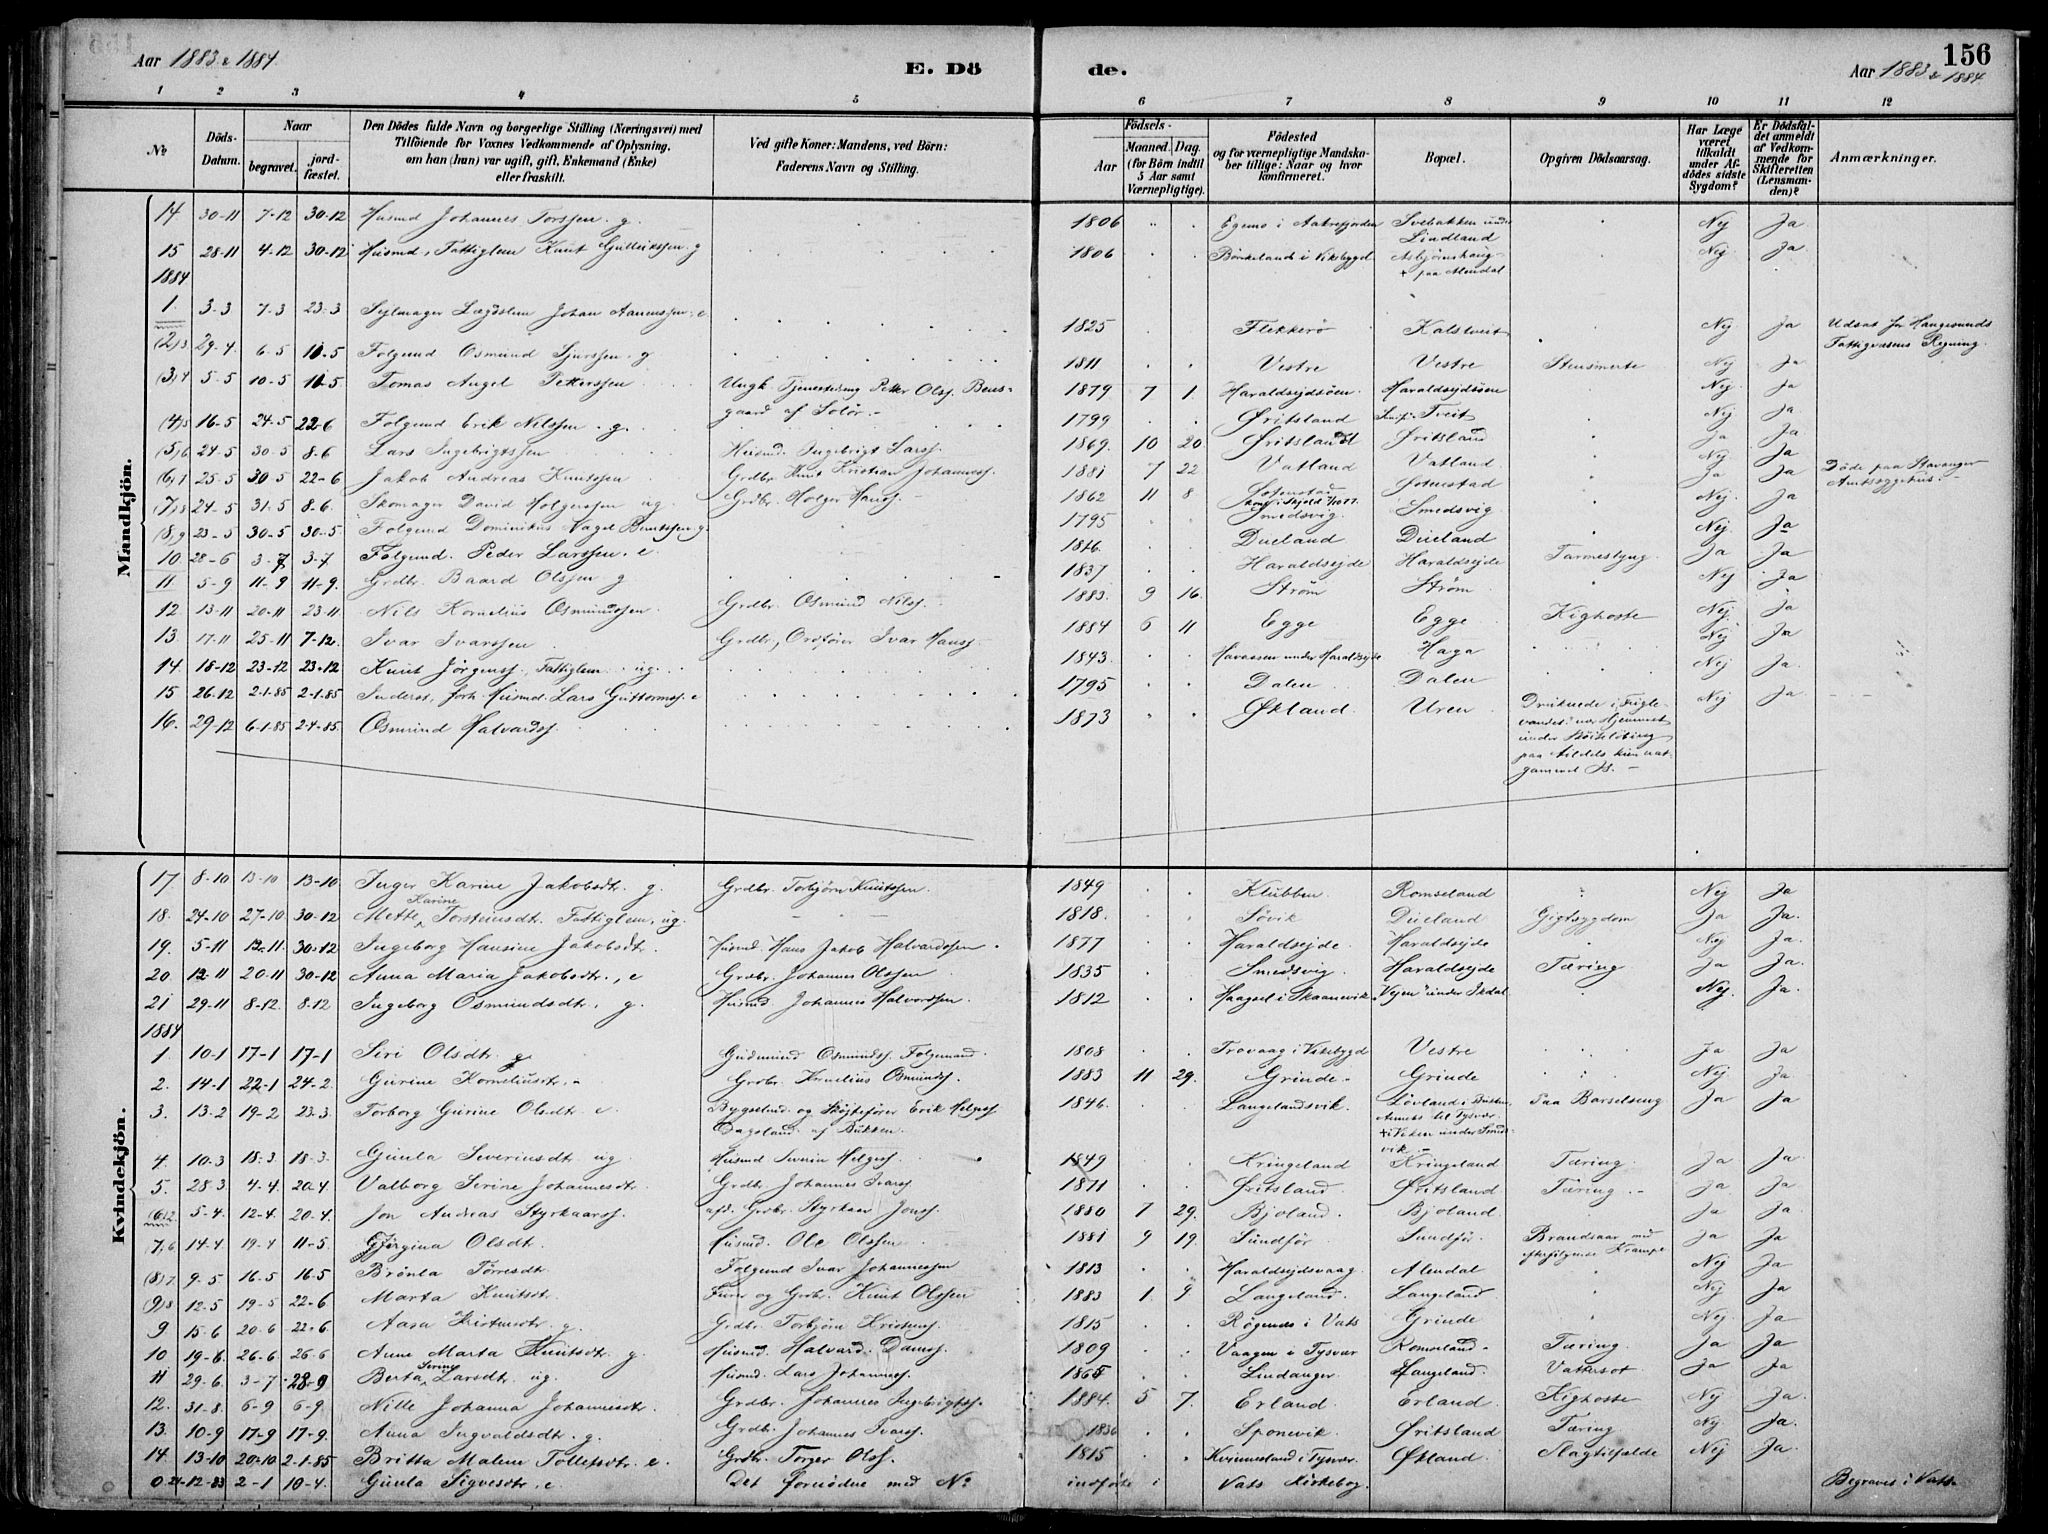 Aar 1883 & 1884.
E. Dö
de.
156
Aar 1883 & 1884.
1 2 3 4 5 6 7 8 9 10 11 12
No
Döds-Datum.
Naar
begravet.
jord-fæstet.
Den Dödes fulde Navn og borgerlige Stilling (Næringsvei) med
Tilföiende for Voxnes Vedkommende af Oplysning,
om han (hun) var ugift, gift, Enkemand (Enke)
eller fraskilt.
Ved gifte Koner: Mandens, ved Börn:
Faderens Navn og Stilling.
Födsels-
Aar
Maaned. Dag.
(for Börn indtil
5 Aar samt
Værnepligtige).
Födested
og for værnepligtige Mandska-
ber tillige: Naar og hvor
konfirmeret.
Bopæl.
Opgiven Dödsaarsag.
Har Læge
været
tilkaldt
under Af-
dödes sidste
Sygdom?
Er Dödsfal-
det anmeldt
af Vedkom-
mende for
Skifteretten
(Lensman-
den)?
Anmærkninger.
Mandkjön.
14 30-11 7-12 30-12 Husmd Johannes Torssen. g. 1806 Egernes i Aakrefjorden Svebakken under Lindland Nej Ja
15 28-11 4-12 30-12 Husmd, Fattiglem Knut Gulleikssen. g 1806 Börkeland i Vikebygd Asbjørnshaug paa Alendal Nej Ja
1884
1. 3-3 7-3 23-3 Sejlmager Lægdslem Johan Aanenssen, e 1825 Flekkerø Kalstveit Nej Ja Udsat for Haugesunds Fattigvæsens Regning.
(2)3 29-4 6-5 10-5 Folgemd Osmund Sjurssen. g 1811 Vestre Vestre Stensmerte Nej Ja
(3)4 5-5 10-5 10-5 Tomas Angel Petterssen Ungk. Tjenestedreng Petter Olss. Bensgaard af Solør. 1879 7 1 Haraldsejdsöen Haraldsejdsöen Nej Ja
(4)5 16-5 24-5 22-6 Folgemd Erik Nilssen. g. 1799 Øritsland Tveit Nej Ja
(5)6 24-5 30-5 8-6 Lars Ingebrigtssen Husmd. Ingebrigt Larss. 1869 10 20 Øritsland Øritsland Ja Ja
(6)7 25-5 30-5 22-6 Jakob Andreas Knutssen Grdbr. Knut Kristian Johanness. 1881 7 22 Vatland Vatland Nej Ja
(7)8 24-5 31-5 8-6. Skomager David Holgerssen ug. Grdbr. Holger Hanss. 1862 11 8 Ja Ja Döde paa Stavanger Amtssygehus.
(8)9 23-5 30-5 30-5 Folgemd Dominikus Nagel Bentssen g. 1795 Smedsvig Smedsvig Nej. Ja
10 28-6 3-7 3-7 Folgemd. Peder Larssen. e. 1816. Dueland Dueland Nej. Ja
11. 5-9 11-9 11-9. Grdbr. Baard Olssen g 1837 Haraldsejde Haraldsejde Tarmeslyng. Ja Ja
12 13-11 20-11 23-11 Nils Kornelius Osmundssen. Grdbr. Osmund Nilss. 1883. 9 16. Strøm Strøm Nej Ja
13. 17-11 25-11 7-12. Ivar Ivarssen Grdbr., Ordfører Ivar Hanss. 1884 6 11 Egge Egge Kighoste Nej. Ja
14. 18-12 23-12 23-12 Knut Jörgenss. Fattiglem ug. 1843. Havaasen under Haraldsejde Haga Nej Ja
15 26-12 2-1-85 2-1-85 Inderst, forh. Husmd. Lars Guttormss. e 1795 Dalen Dalen Nej Ja.
16. 29-12 6-1-85 2-4-85. Osmund Halvardss. 1873 Økland. Uren Druknede i Fuglevandet Nej Ja
Kvindekjön.
17 8-10 13-10 13-10 Inger Karine Jakobsdtr. g. Grdbr. Torbjörn Knutssen. 1849 Klubben Romseland Nej Ja
18. 24-10 27-10. 30-12 Mette Karine Torsteinsdtr. Fattiglem, ug. 1818. Søvik Dueland Gigtsygdom Ja Ja.
19. 5-11 13-11. 30-12 Ingeborg Hansine Jakobsdtr. Husmd. Hans Jakob Halvardssen. 1877 Haraldsejde. Haraldsejde Nej Ja.
20. 12-11 20-11 30-12 Anna Maria Jakobsdtr., e Grdbr. Johannes Olssen 1835 Smedsvig. Haraldsejde Tæring Ja Ja.
21 29-11 8-12. 8-12 Ingeborg Osmundsdtr. g. Husmd. Johannes Halvorssen. 1812 Haagsel i Skaanevik Vejen under Skdal Nej. Ja.
1884
1. 10-1 17-1 17-1 Siri Olsdtr. g. Gudmund Osmundss. Folgemand. 1808 Trovaag i Vikebygd Vestre Ja Ja
2. 14-1 22-1 24-2. Gurine Korneliusdtr. Grdbr. Kornelius Osmundss. 1883 11 29. Grinde Grinde Nej Ja.
3. 13-2 19-2 23-3 Torborg Gurine Olsdtr. e. Bygselmd. og Skøjtefører Erik Helgess. Dagsland af Bukken. 1846. Langelandsvik. Løvland i Bukken Annex til Tysvær. + i Viken under Smedsvik Paa Barselseng Ja Ja
4. 10-3 18-3 18-3. Gunla Severinsdtr ug Husmd Severin Helgess. 1849 Kringeland Kringeland Tæring. Ja Ja.
5. 28-3 4-4. 20-4 Valborg Serine Johannesdtr. Grdbr. Johannes Ivarss. 1871 Øritsland. Øritsland Tæring. Ja Ja
(6)2. 5-4. 12-4 20-4. Jon Andreas Styrkaarss. afd. Grdbr. Styrkaar Jonss. 1880 7 29. Bjoland. Bjoland Ja Ja
7,6 14-4 19-4 11-5. Gjørgina Olsdtr. Husmd. Ole Olssen 1881 9 19. Sundfør Sundfør Brandsaar med efterfølgende Krampe Ja Ja
(8)7. 9-5 16-5 16-5 Brönla Törresdtr. Folgemd Ivar Johannessen 1813 Haraldsejdsvaag Alendal Nej Ja
(9)8 12-5 19-5 22-6 Marta Knutsdtr. Furer og Grdbr. Knut Olssen 1883 1. 9 Langeland. Langeland Nej Ja
9 15-6 20-6 22-6. Aasa Kristensdtr. g. Grdbr. Torbjörn Kristenss. 1815 Røgenes i Vats Grinde Nej. Ja
10 19-6. 26-6. 26-6 Anne Marta Knutsdtr. g. Husmd. Halvard Damss. 1809 Vaagen i Tysvær Romseland. Tæring. Ja Ja
11 29-6. 3-7 28-9 Berta Serine Larsdtr. ug. Husmd. Lars Johanness. 1865 Lindanger. Hangeland. Vattersot Ja Ja
12. 31-8. 6-9 6-9. Nille Johanna Johannesdtr. Grdbr. Johannes Ingebrigtss. 1884. 5 7. Erland. Erland. Kighoste Nej Ja.
13. 10-9 17-9 17-9. Anna Ingvaldsdtr. g. Grdbr. Johannes Ivarss. 1836 Sponevik. Øritsland Tæring Nej. Ja.
14. 13-10 20-10 2-1-85 Britta Malene Tollefsdtr. e. Grdbr. Torger Olss. 1815 Kvinnesland i Tysvær. Økland. Slagtilfælde Nej Ja.
0 24-12-83 2-1 10-4. Gunla Sigvesdtr, e. Det fornødne med No indførte i Vats Kirkebog. Begraves i Vats.